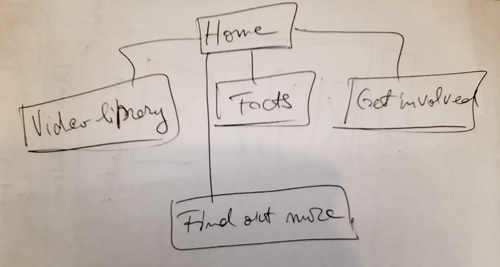 Home
Video library
Facts
Get involved
Find out more